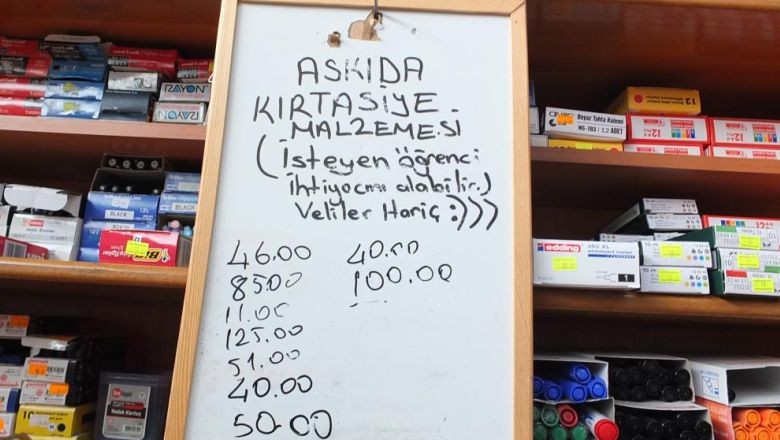 ASKIDA
KIRTASİYE
MALZEMESI
(İsteyen öğrenci
ihtiyacını alabilir.)
Veliler Hariç :)))
46.00
85.00
11.00
125.00
51.00
40.00
50.00
40.00
100.00
RAYON
RAYON
BLACK
BLACK
Beyaz Tahta Kalemi
12 ADET
12
12
edding
360 XL
Yedek Kartuş
10